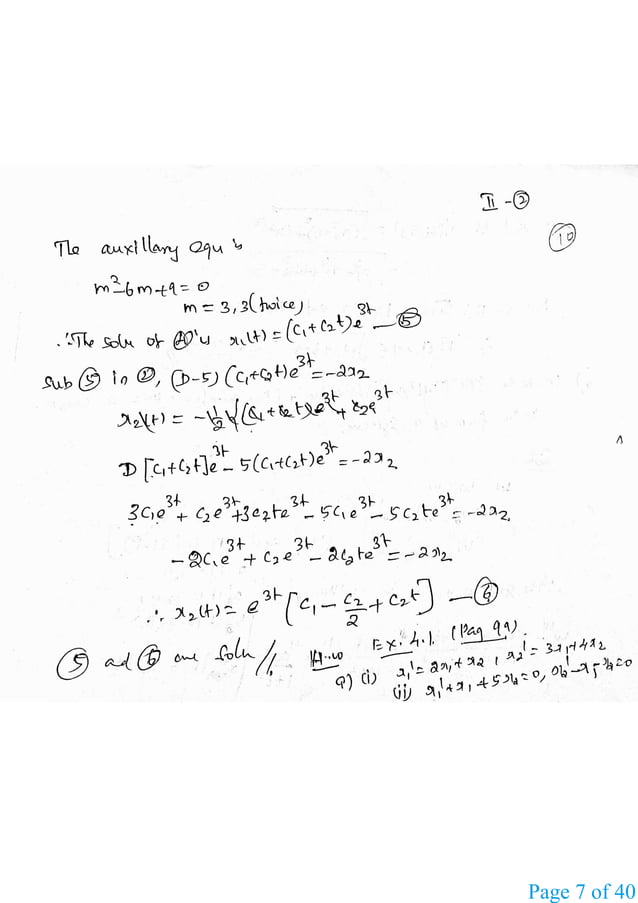 II - ②
⑩
The auxillary equ is
m² - 6m + 9 = 0
m = 3, 3 (twice)
∴ The soln of is x₁(t) = (c₁ + c₂t)e^{3t} — ⑤
Sub ⑤ in ②, (D-5) (c₁+c₂t)e^{3t} = -2x₂
x₂(t) = -1/2 (c₁ + c₂t)e^{3t} + c₂e^{3t}
D [c₁+c₂t]e^{3t} - 5(c₁+c₂t)e^{3t} = -2x₂
3c₁e^{3t} + c₂e^{3t} + 3c₂te^{3t} - 5c₁e^{3t} - 5c₂te^{3t} = -2x₂
-2c₁e^{3t} + c₂e^{3t} - 2c₂te^{3t} = -2x₂
∴ x₂(t) = e^{3t} [c₁ - c₂/2 + c₂t] — ⑥
⑤ ad ⑥ are soln //.
H.w Ex. 4.1. (Pag 99).
Q) (i) x₁' = 2x₁ + x₂, x₂' = 3x₁ + 4x₂
(ii) x₁' + x₁ + 5x₂ = 0,
Page 7 of 40